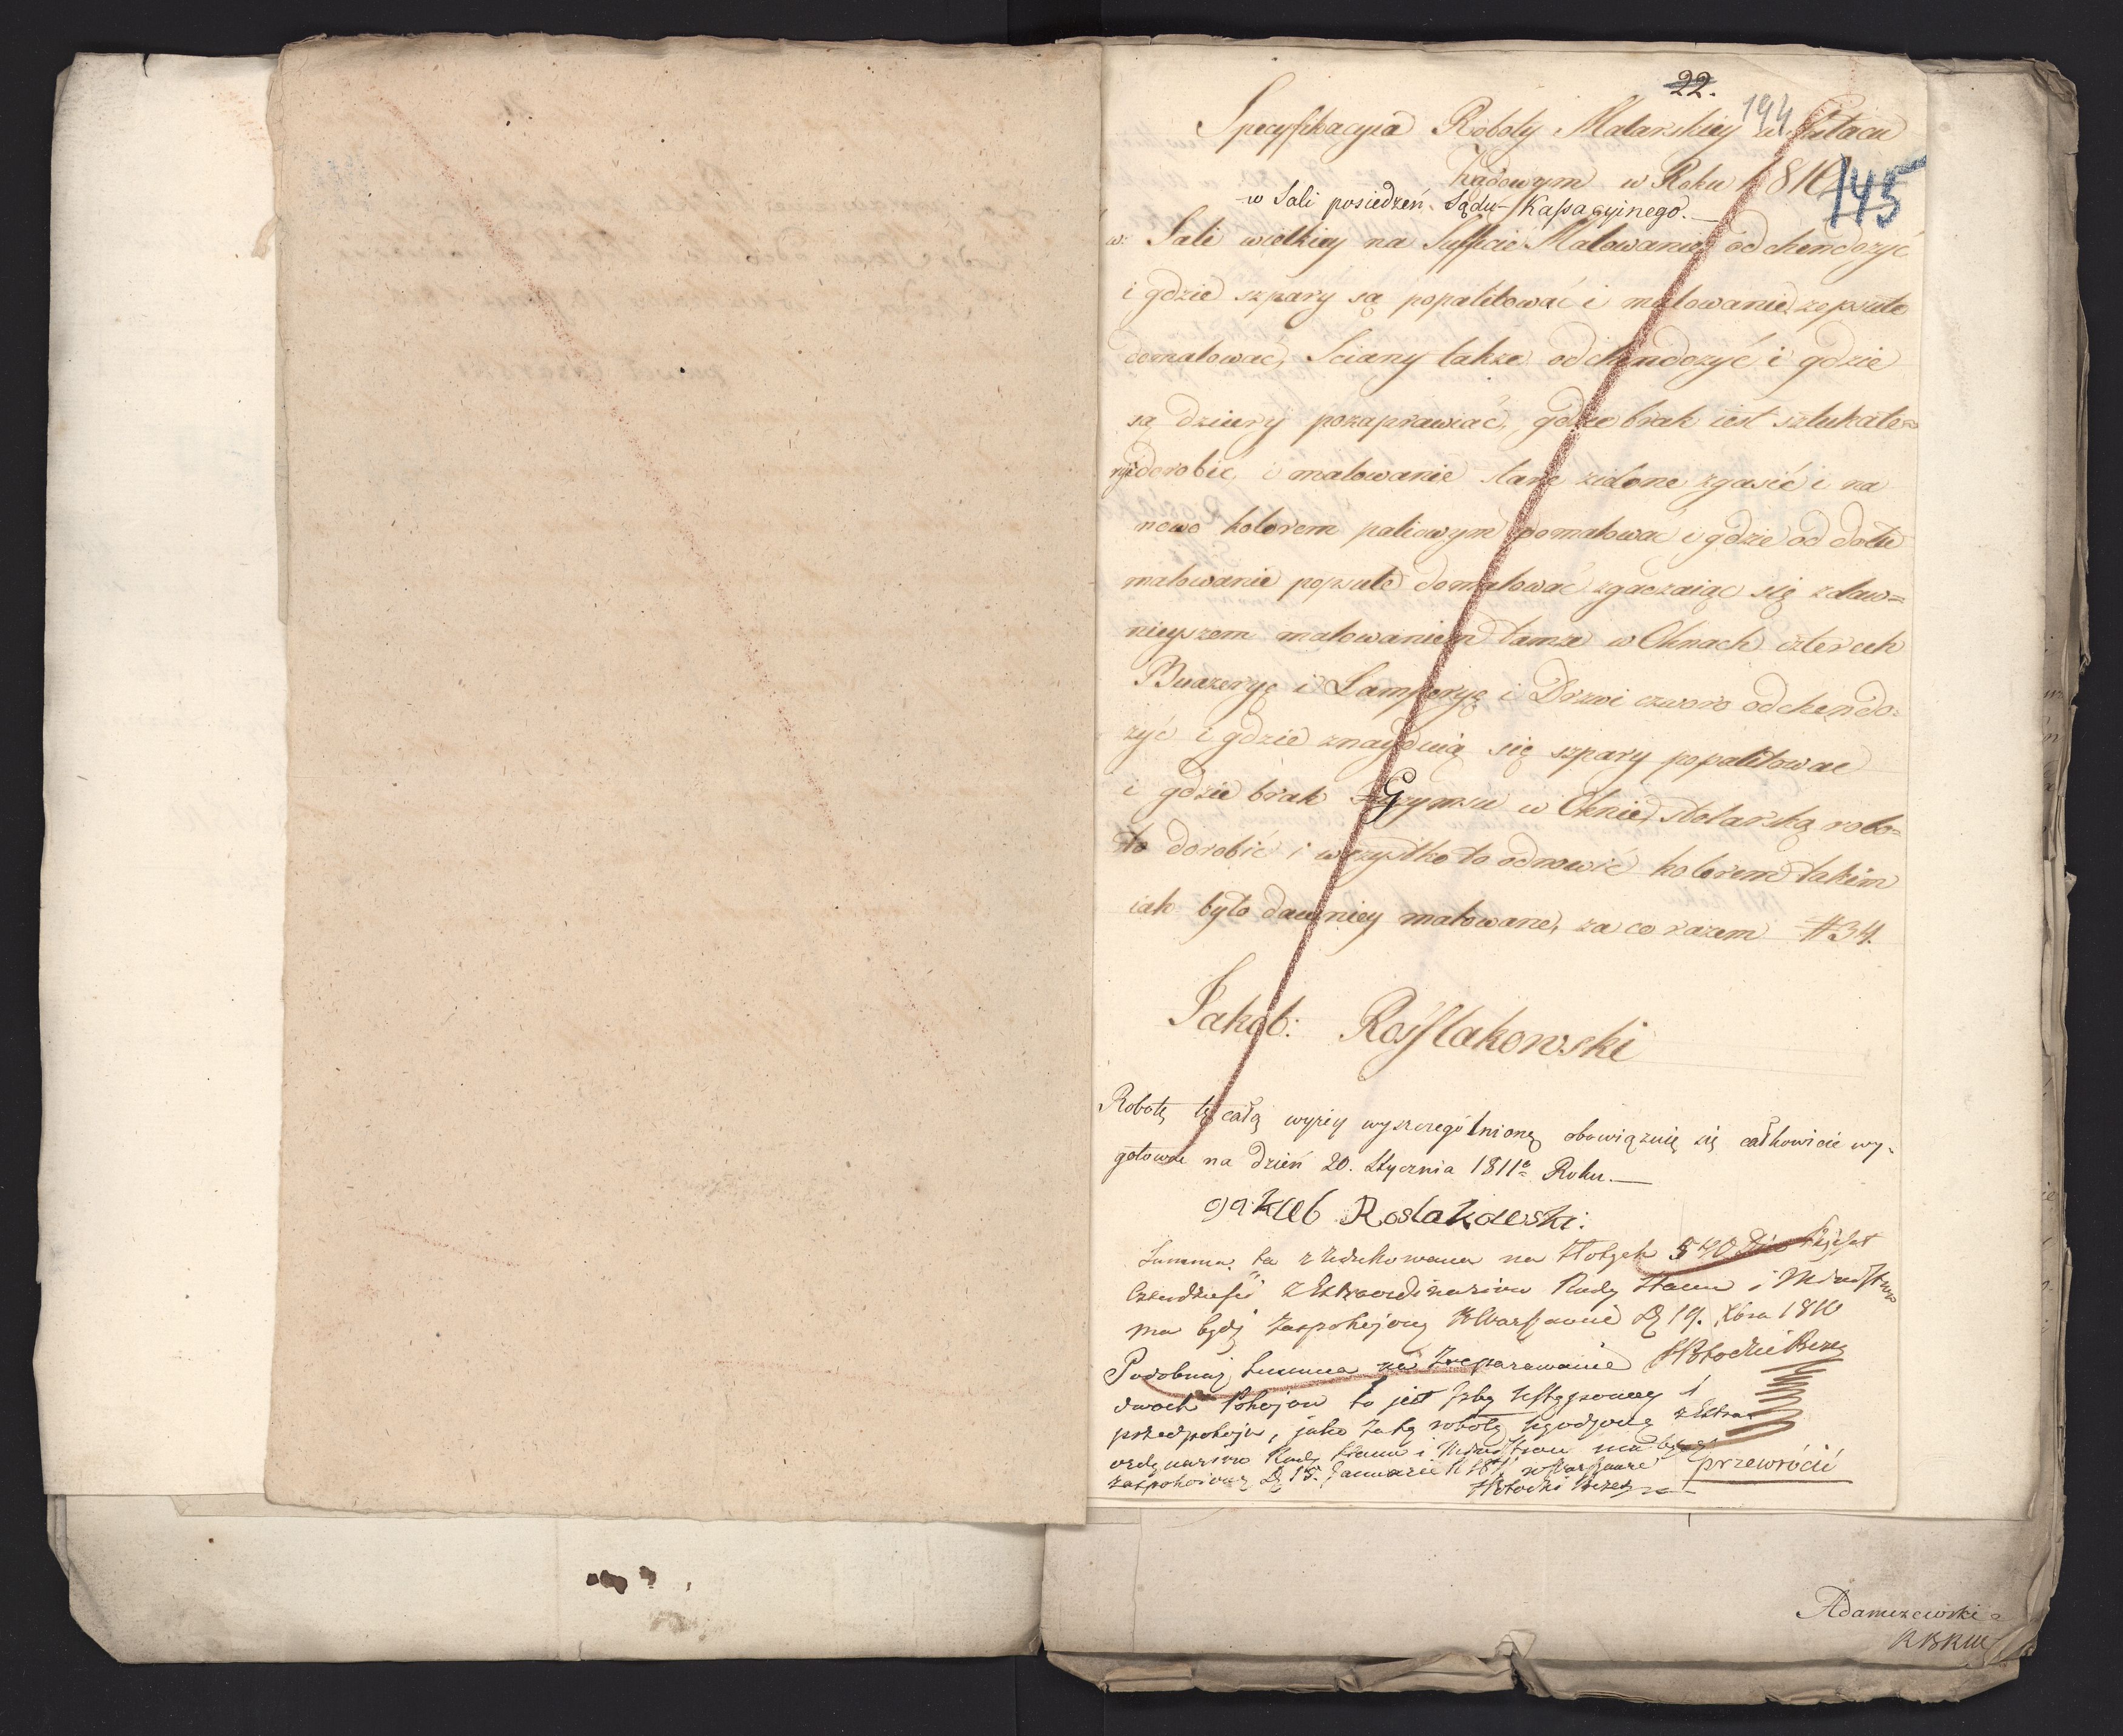 22.
194
Specyfikacyia Roboty Malarskiey w Pałacu
Rządowym w Roku 1810
145
w Sali posiedzeń Sądu Kassacyinego.
w: Sali wielkiey na Suffcie Malowanie odchendozyć
i gdzie szpary są popalitować i malowanie zepsute
domalować, Sciany takze odchendozyć i gdzie
są dziury pozaprawiać, gdzie brak iest sztukate=
ryi dorobić, i malowanie stare zielone zgasić i na
nowo kolorem paliowym pomalować i gdzie od dołu
malowanie popsute domalować zgaczaiąc się z daw=
nieyszem malowaniem tamze w Oknach czterech
Buazeryę i Lamperyę i Drzwi czworo odchendo=
żyć i gdzie znayduią się szpary popalitować
i gdzie brak Gzymsu w Oknie, stolarską robo=
to dorobić i wszystko to odnowić kolorem takim
iak było dawniey malowane, za co razem #34.
Jakób: Rosslakowski
Robotę tę całą wyżey wyszczególnioną obowiązuię się całkowicie wy-
gotować na dzień 20. Stycznia 1811º Roku.—
Jakub Roslakowski:
Summa ta zredukowana na Złotych 540 Pięćset
Czterdzieści z Extraordinariow Rady Stanu i Ministrow
ma bydź zaspokojoną w Warszawie D 19. Xbra 1810
Podobnaż Summa za zreparowanie SPotocki Prezes
dwoch Pokojow to jest Izby Ustępowey i
przedpokoju, jako za tę robotę ugodzoną z Extra
ordynariow Rady Stanu i Ministrow ma bydź
zaspokoiona D 15. Januarii 1811 w Warszawie
SPotocki Prezes
przewrócić
Adamczewski